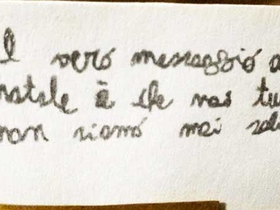 l vero messaggio d
natale è che noi tu
non siamo mai sol